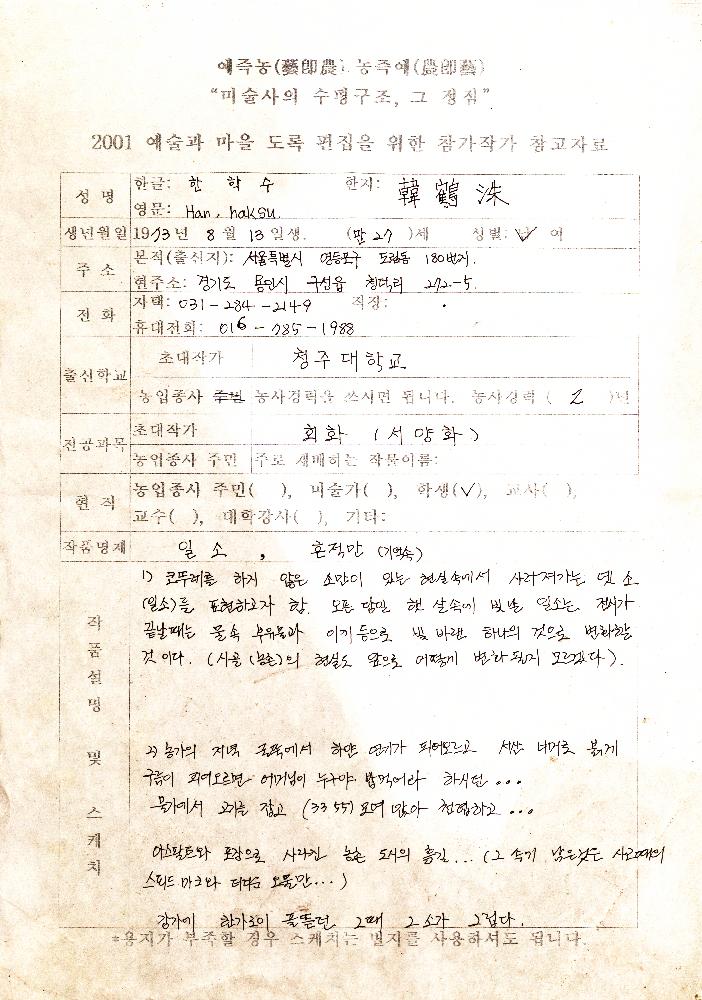 예즉농(藝卽農) 농즉예(農卽藝)
"미술사의 수평구조, 그 정점"
2001 예술과 마을 도록 편집을 위한 참가작가 참고자료
성 명 한글: 한 학 수 한자: 韓 鶴 洙
영문: Han, haksu.
생년월일 1973년 8월 13일생. (만 27)세 성별: 남 ✓ 여
주 소 본적(출신지): 서울특별시 영등포구 도림동 180번지.
현주소: 경기도 용인시 구성읍 청덕리 272-5.
전 화 자택: 031-284-2149 직장:
휴대전화: 016-785-1988
출신학교 초대작가 청주대학교
농업종사 주민 농사경력을 쓰시면 됩니다. 농사경력 ( 2 )년
전공과목 초대작가 회화 (서양화)
농업종사 주민 주로 재배하는 작물이름:
현 직 농업종사 주민( ), 미술가( ), 학생(✓), 교사( ),
교수( ), 대학강사( ), 기타:
작품명제 일 소 , 흔적만 (기억속)
작품설명 및 스케치
1) 코뚜레를 하지 않은 소만이 있는 현실속에서 사라져가는 옛 소
(일소)를 표현하고자 함. 오른 햇살속에 빛날 일소는 전시가
끝날때는 물속 부유물과 이끼등으로 빛 바랜 하나의 것으로 변화할
것이다. (시골 (농촌)의 현실도 앞으로 어떻게 변화될지 모르겠다).
2) 농가의 저녁 굴뚝에서 하얀 연기가 피어오르고 서산 너머로 붉게
구름이 피어오르면 어머님이 누구야 밥먹어라 하시던 ...
물가에서 고기를 잡고 (33 55) 모여 앉아 천렵하고 ...
아스팔트와 포장으로 사라진 농촌 도시의 흙길... (그 속기 남은것은 사고때의
스피드 마크와 더러운 오물만...)
강가에 한가로이 풀뜯던 그때 그소가 그립다.
*용지가 부족할 경우 스케치는 별지를 사용하셔도 됩니다.